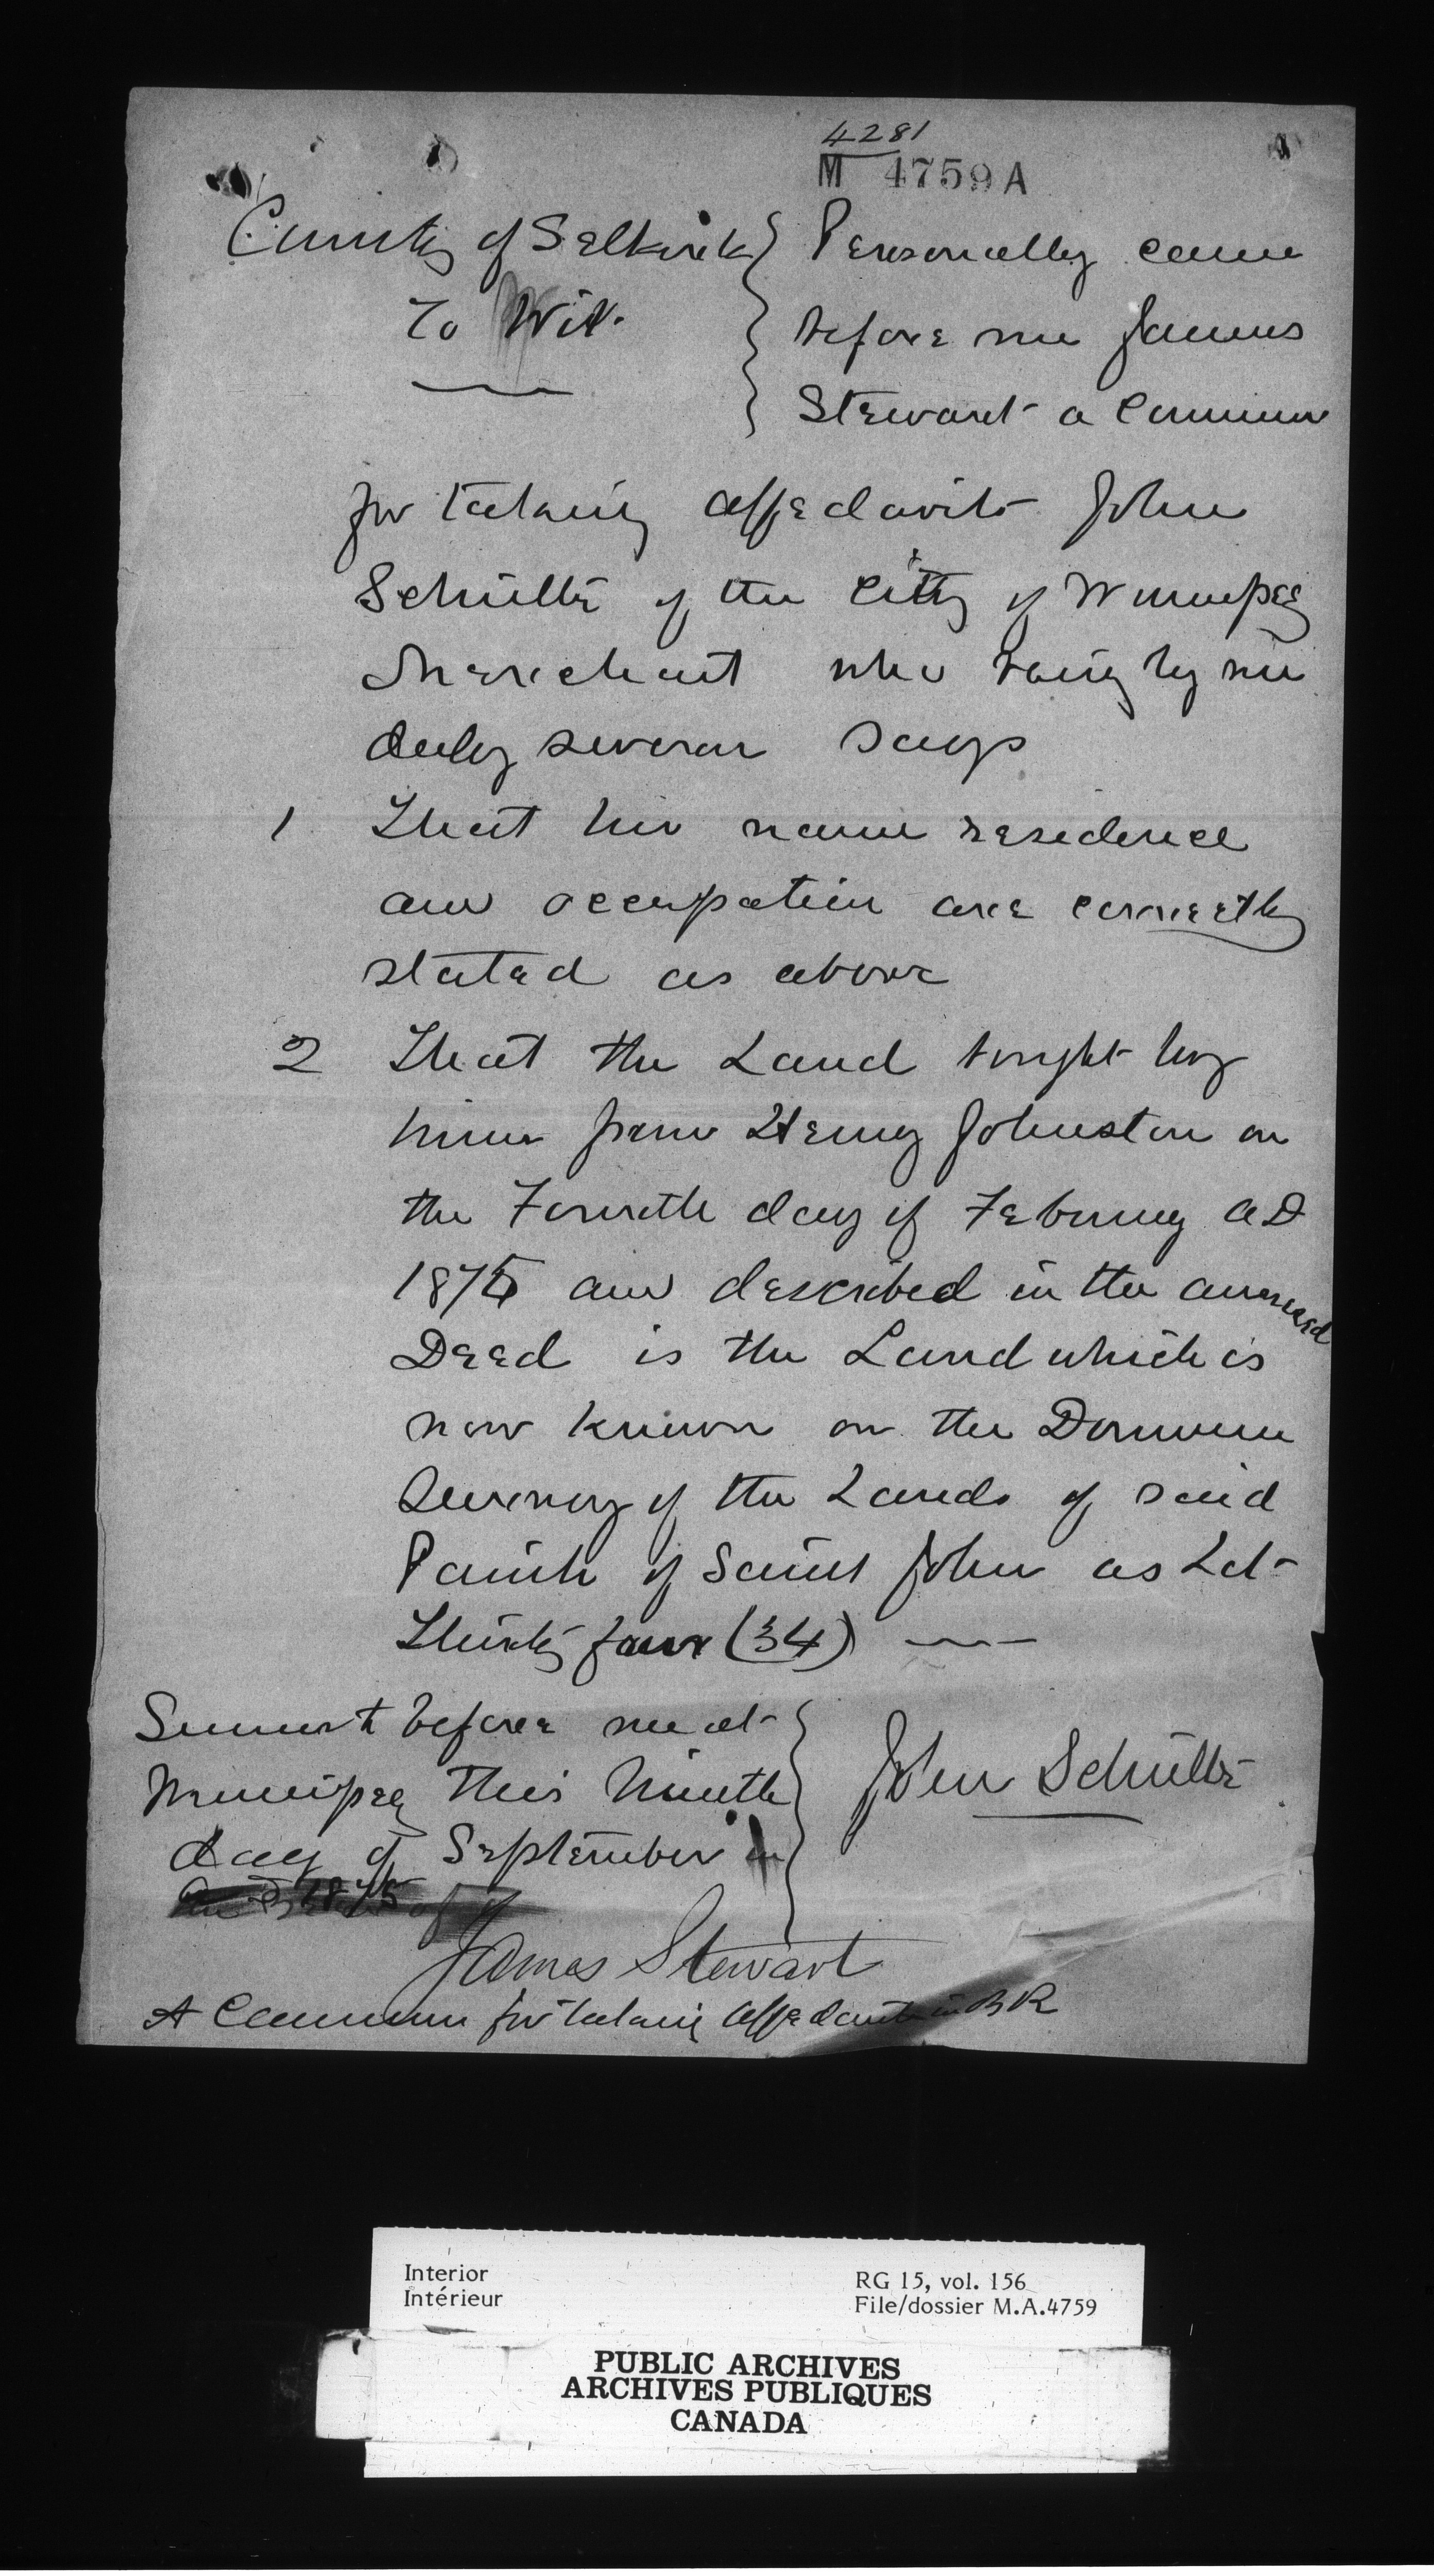 4281
M 4759 A
County of Selkirk } Personally came
To Wit. } before me James
} Stewart a Commr
for taking affedavits John
Schultz of the City of Winnipeg
Merchant who being by me
duly sworn says
1 That his name residence
and occupation are correctly
stated as above
2 That the Land bought by
him from Henry Johnston on
the Fourth day of February AD
1875 and described in the annexed
Deed is the Land which is
now known on the Dominion
Survey of the Lands of said
Parish of Saint John as Lot
Thirty four (34)
Sworn to before me at
Winnipeg this Ninth
day of September
1875
John Schultz
James Stewart
A Commr for taking Affedavits in B R
Interior
Intérieur
RG 15, vol. 156
File/dossier M.A.4759
PUBLIC ARCHIVES
ARCHIVES PUBLIQUES
CANADA